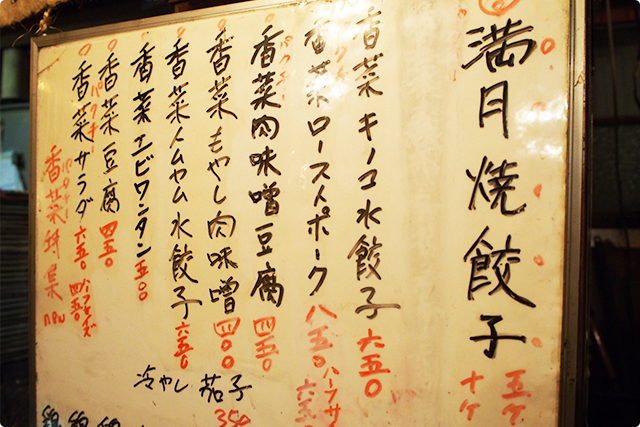 満月焼餃子
五ケ
十ケ
香菜キノコ水餃子 六五〇
香菜ローストポーク 八五〇
ハーフサ
六五
香菜肉味噌豆腐 四五〇
パクチー
香菜もやし肉味噌 四〇〇
香菜トムヤム水餃子 六五〇
香菜エビワンタン 五〇〇
香菜豆腐 四五〇
香菜サラダ 六五〇
パクチー
ハーフサイズ
四五〇
香菜特集
new
冷やし茄子
350